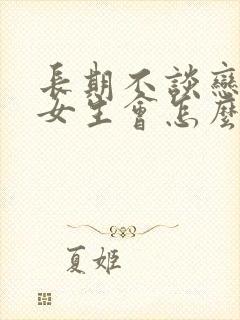 長期不談戀
女生會怎麼
夏姬